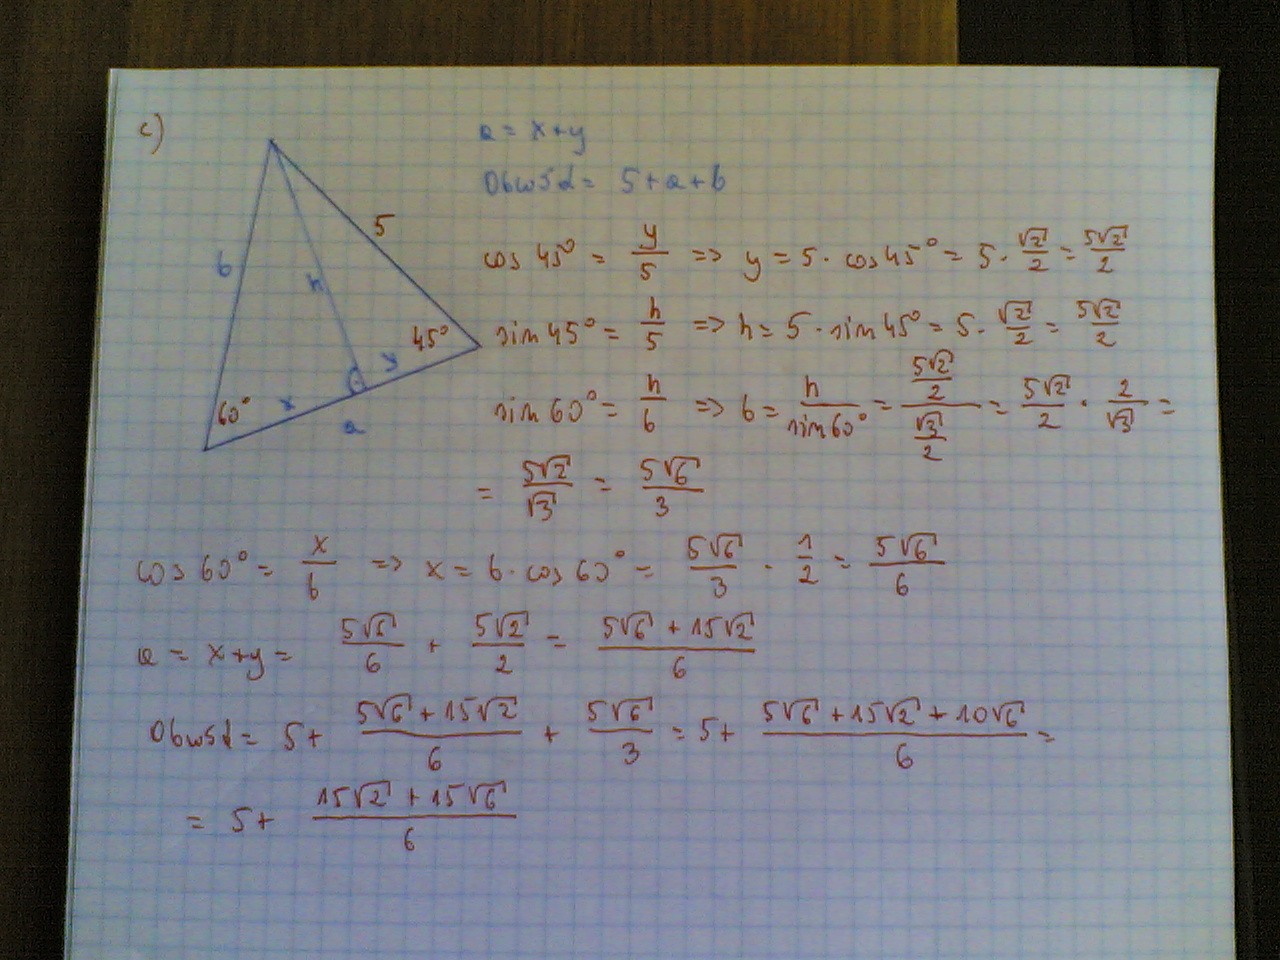 c)
a = x+y
Obwód = 5+a+b
5
b
h
45°
y
60°
x
a
cos 45° = y/5 => y = 5 · cos 45° = 5 · √2/2 = 5√2/2
sin 45° = h/5 => h = 5 · sin 45° = 5 · √2/2 = 5√2/2
sin 60° = h/b => b = h/sin 60° = (5√2/2)/(√3/2) = 5√2/2 · 2/√3 =
= 5√2/√3 = 5√6/3
cos 60° = x/b => x = b · cos 60° = 5√6/3 · 1/2 = 5√6/6
a = x+y = 5√6/6 + 5√2/2 = (5√6 + 15√2)/6
Obwód = 5+ (5√6 + 15√2)/6 + 5√6/3 = 5+ (5√6 + 15√2 + 10√6)/6 =
= 5+ (15√2 + 15√6)/6